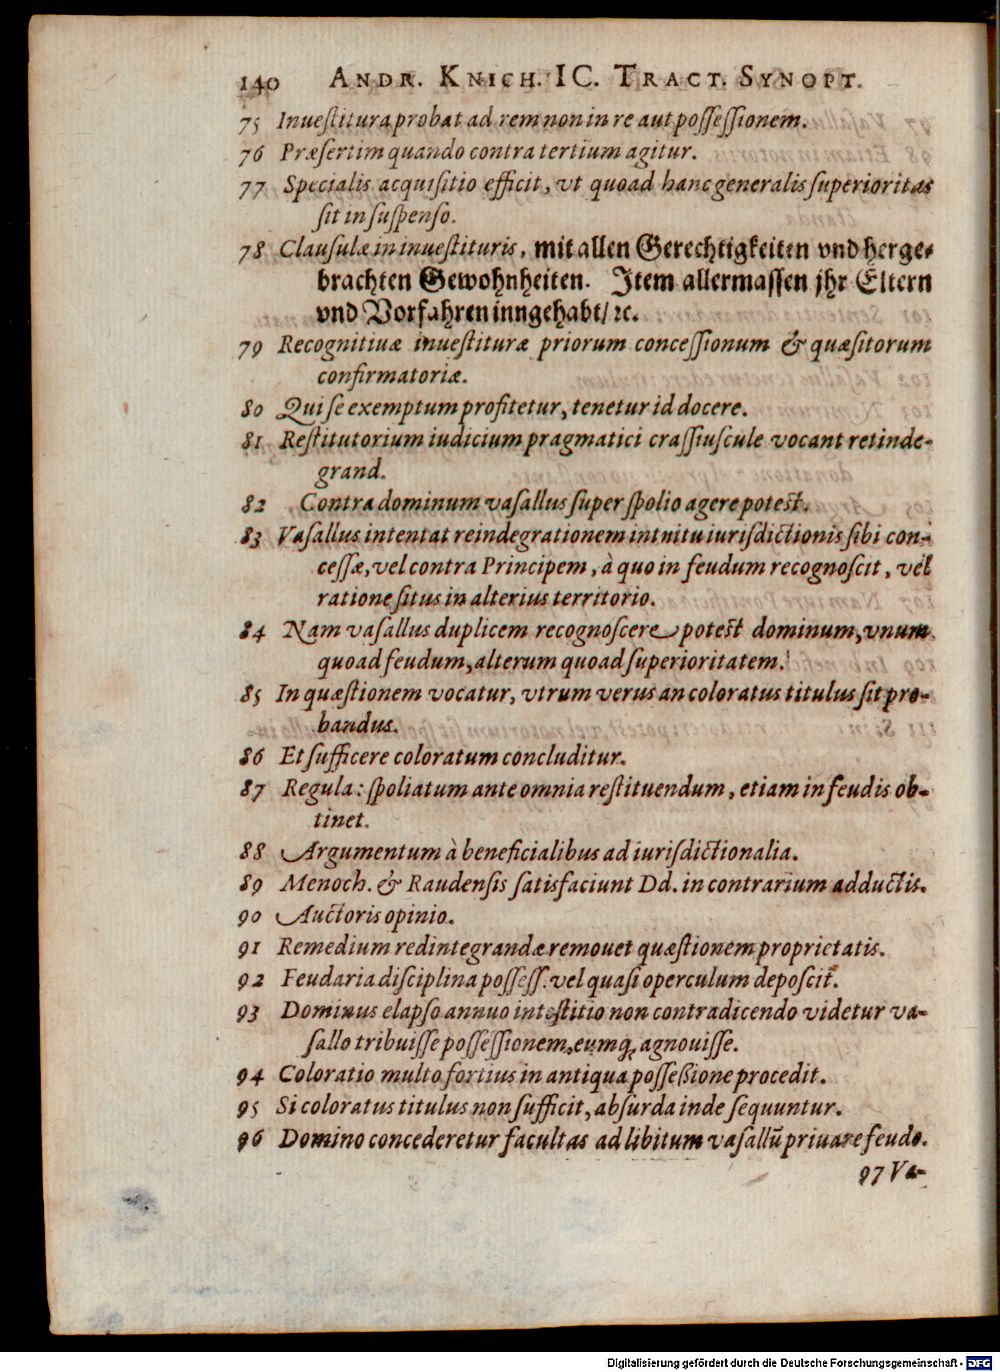 140 ANDR. KNICH. IC. TRACT. SYNOPT.
75 Inueſtitura probat ad rem non in re aut poſſeſſionem.
76 Præſertim quando contra tertium agitur.
77 Specialis acquiſitio efficit, vt quoad hanc generalis ſuperioritas
ſit in ſuſpenſo.
78 Clauſulæ in inueſtituris, mit allen Gerechtigkeiten vnd herge-
brachten Gewohnheiten. Item allermaſſen jhr Eltern
vnd Vorfahren inngehabt/ ꝛc.
79 Recognitiuæ inueſtituræ priorum conceſſionum & quæſitorum
confirmatoriæ.
80 Qui ſe exemptum profitetur, tenetur id docere.
81 Reſtitutorium iudicium pragmatici craſſiuſcule vocant retinde-
grand.
82 Contra dominum vaſallus ſuper ſpolio agere poteſt.
83 Vaſallus intentat reindegrationem intuitu iurisdictionis ſibi con-
ceſſæ, vel contra Principem, à quo in feudum recognoſcit, vel
ratione ſitus in alterius territorio.
84 Nam vaſallus duplicem recognoſcere poteſt dominum, vnum
quoad feudum, alterum quoad ſuperioritatem.
85 In quæſtionem vocatur, vtrum verus an coloratus titulus ſit pro-
bandus.
86 Et ſufficere coloratum concluditur.
87 Regula: ſpoliatum ante omnia reſtituendum, etiam in feudis ob-
tinet.
88 Argumentum à beneficialibus ad iurisdictionalia.
89 Menoch. & Raudenſis ſatisfaciunt Dd. in contrarium adductis.
90 Auctoris opinio.
91 Remedium redintegrandæ remouet quæſtionem proprietatis.
92 Feudaria diſciplina poſſeſſ. vel quaſi operculum depoſcit.
93 Dominus elapſo annuo inteſtitio non contradicendo videtur va-
ſallo tribuiſſe poſſeſſionem, eumq; agnouiſſe.
94 Coloratio multo fortius in antiqua poſſeßione procedit.
95 Si coloratus titulus non ſufficit, abſurda inde ſequuntur.
96 Domino concederetur facultas ad libitum vaſallū priuare feudo.
97 Va-
Digitalisierung gefördert durch die Deutsche Forschungsgemeinschaft - DFG